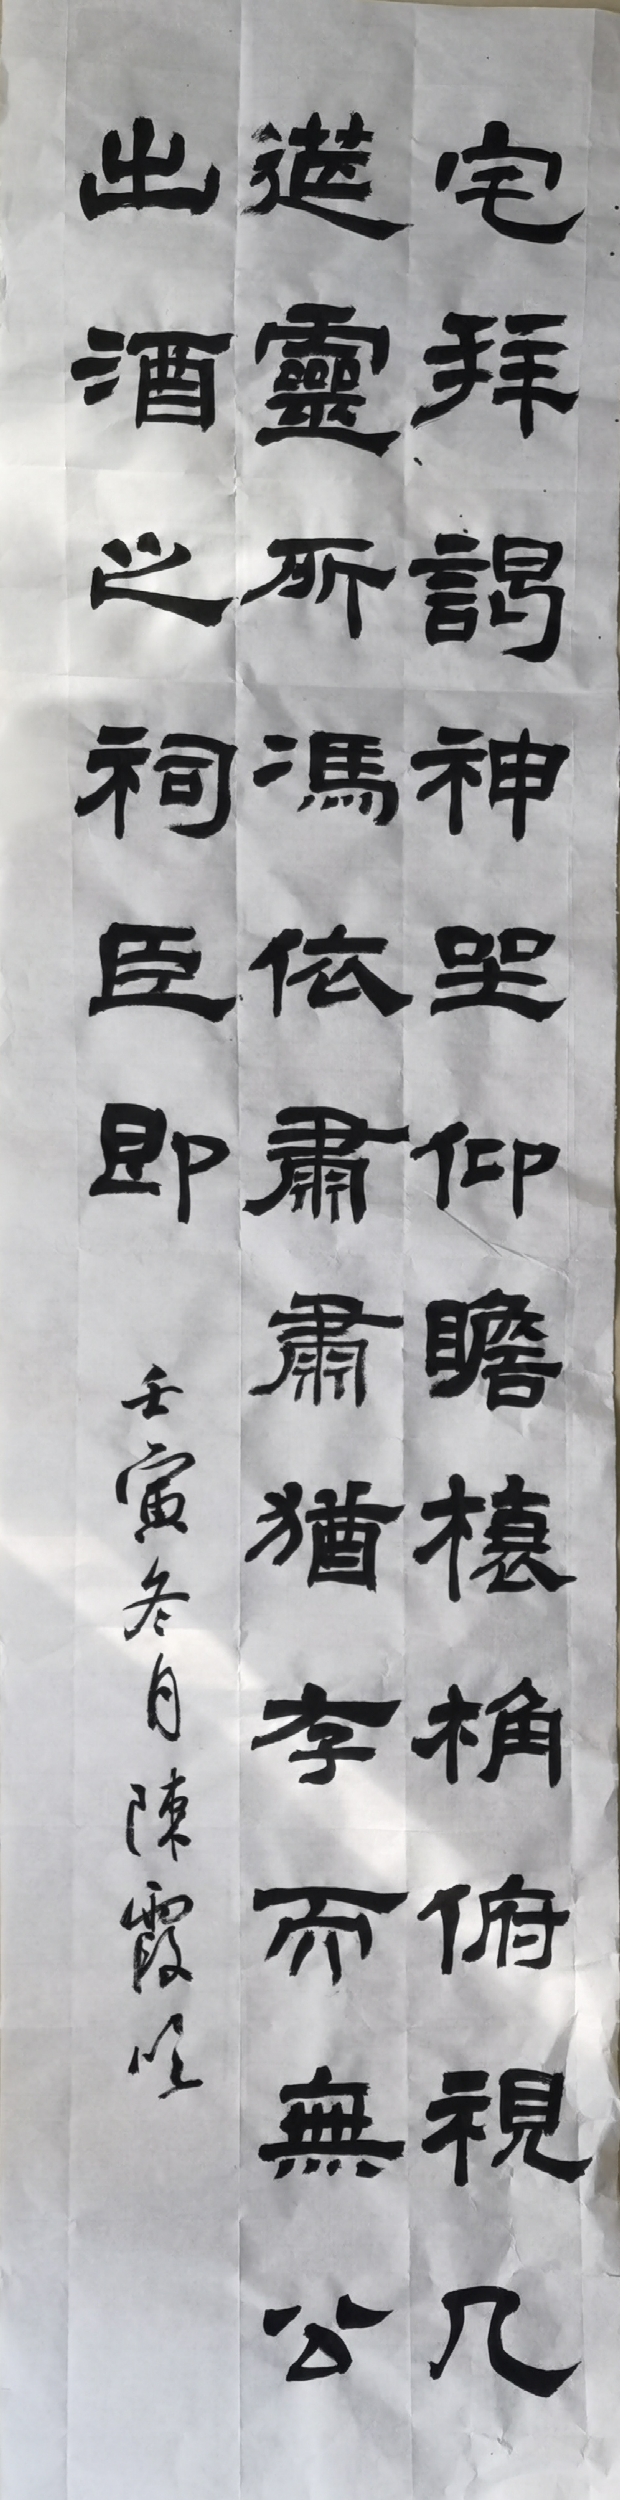 宅拜謁神坐仰瞻榱桷俯視几
筵靈所馮依肅肅猶存而無公
出酒之祠臣即
壬寅冬月陳霞